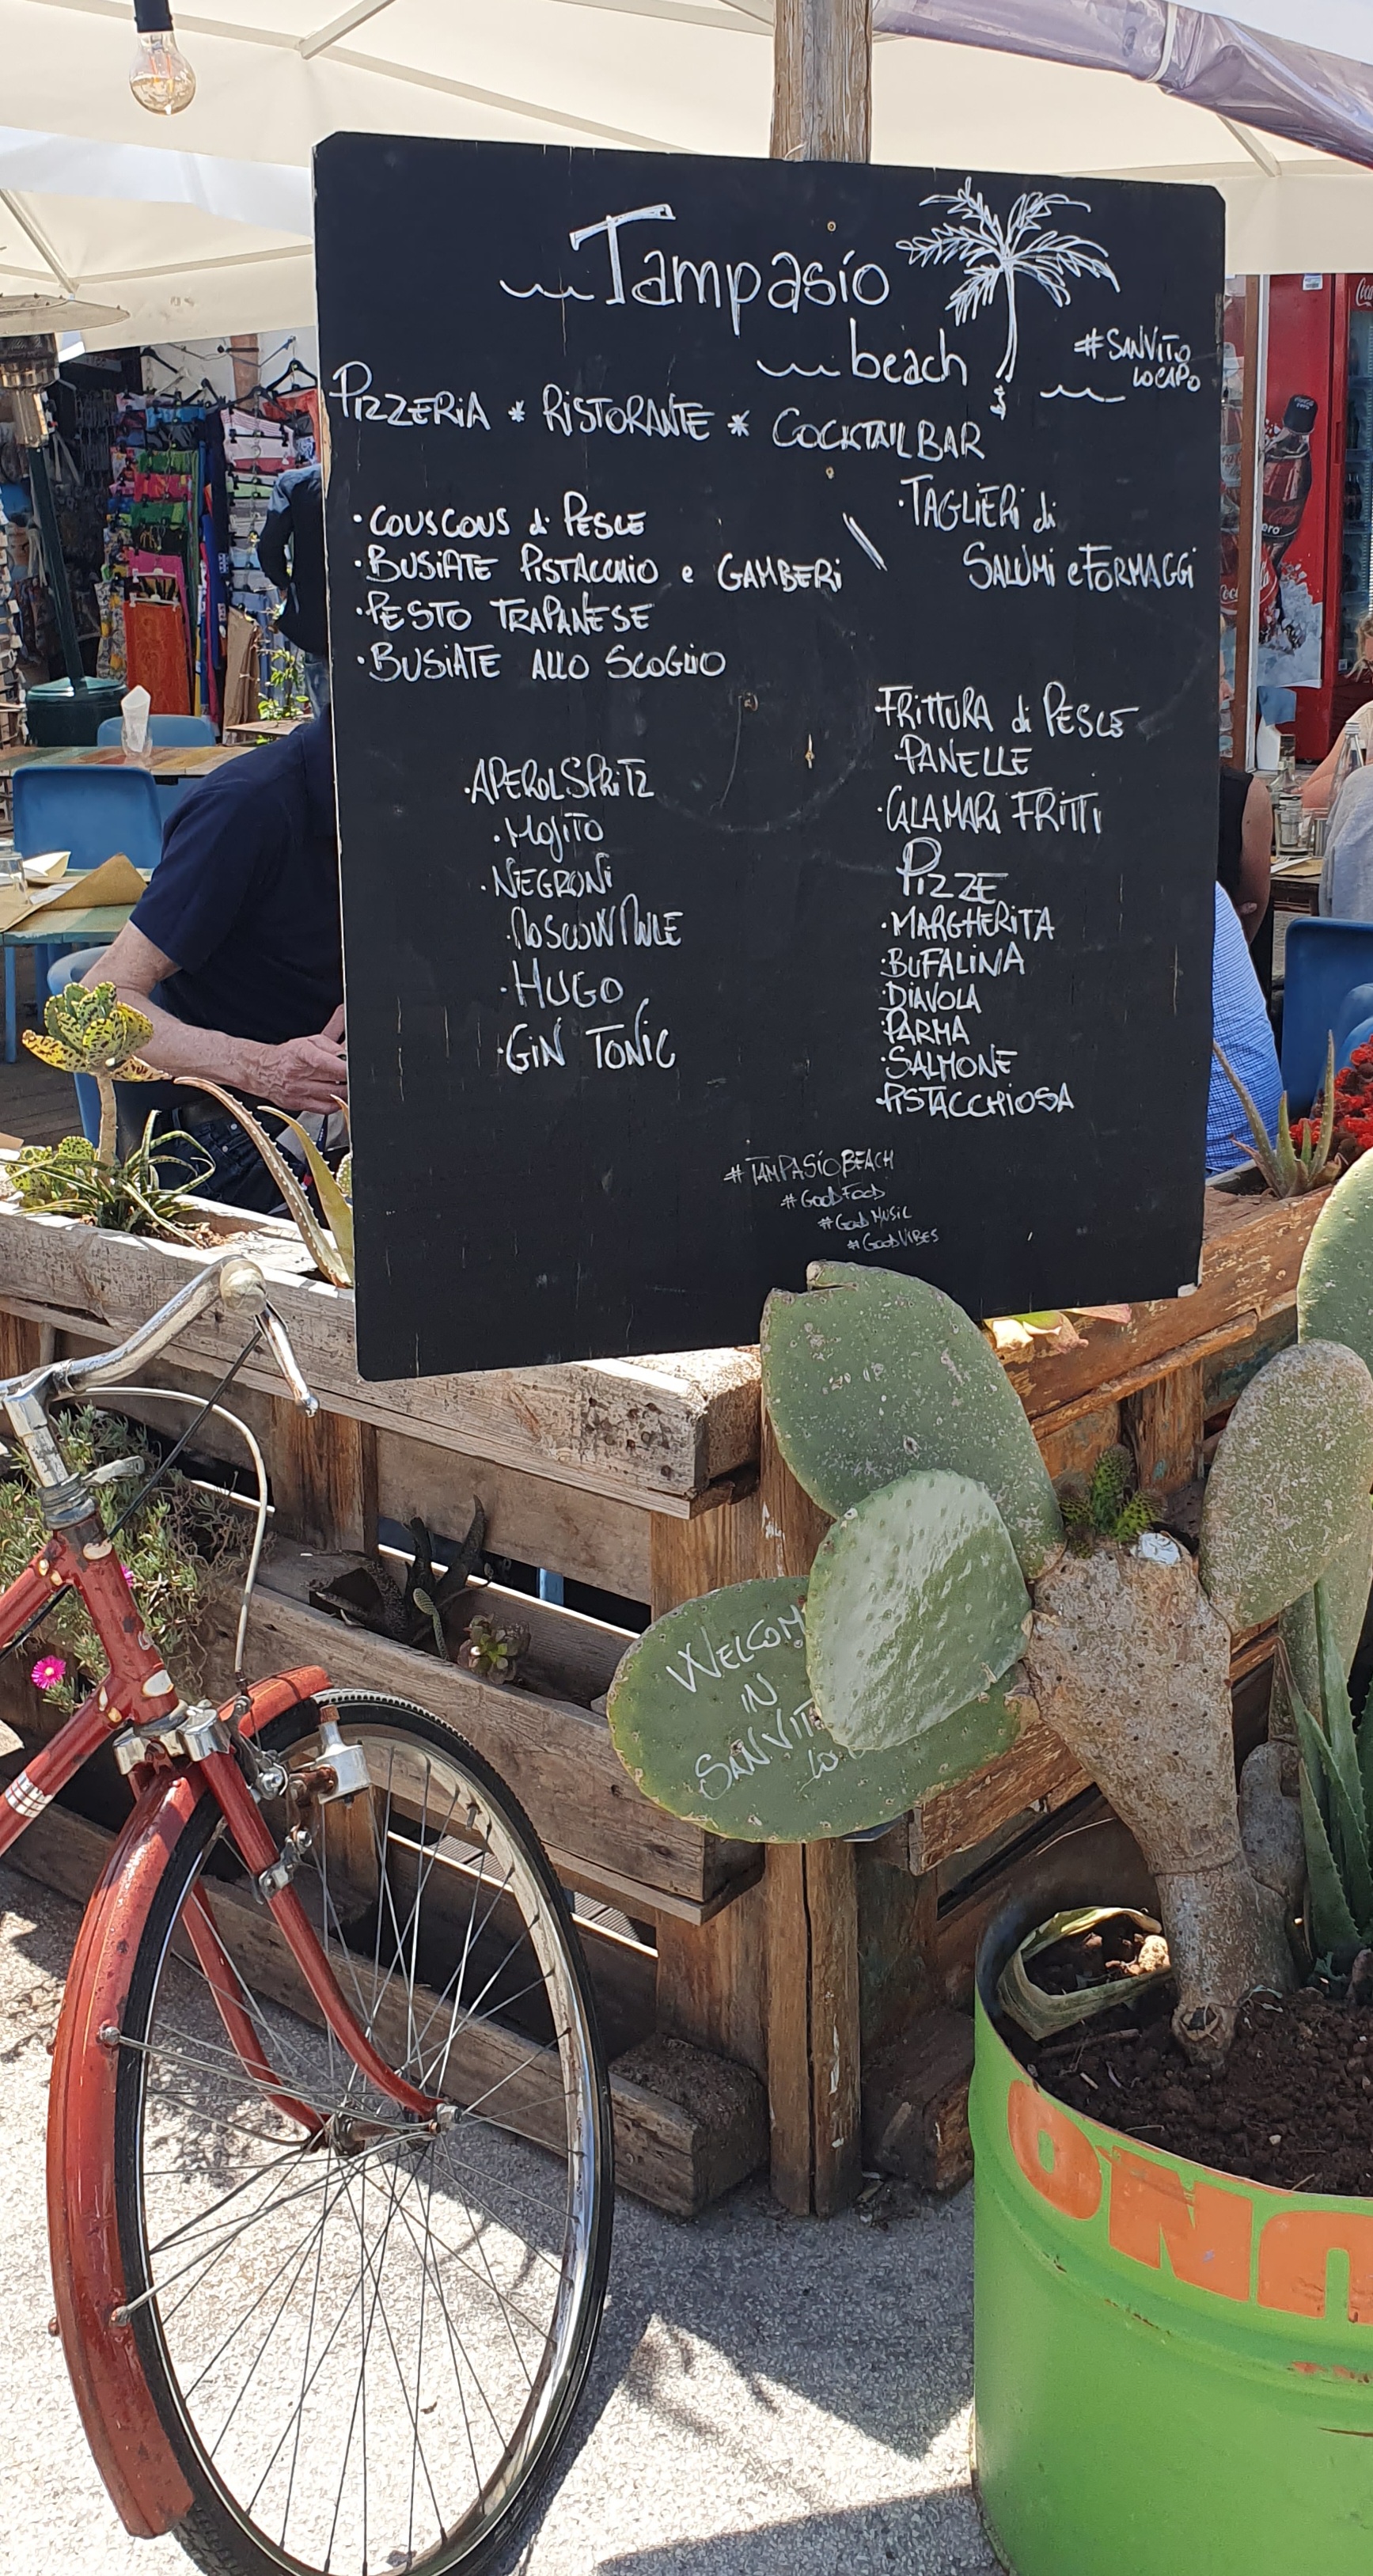 Tampasio
beach
#SANVITO
LOCAPO
PIZZERIA * RISTORANTE * COCKTAILBAR
·COUSCOUS di PESCE
·BUSIATE PISTACCHIO e GAMBERI
·PESTO TRAPANESE
·BUSIATE ALLO SCOGLIO
·TAGLIERI di
SALUMI e FORMAGGI
FRITTURA di PESCE
·PANELLE
·CALAMARI FRITTI
·APEROLSPRITZ
·MOJITO
·NEGRONI
·MOSCOWMULE
·HUGO
·GIN TONIC
PIZZE
·MARGHERITA
·BUFALINA
·DIAVOLA
·PARMA
·SALMONE
·PISTACCHIOSA
#TAMPASIOBEACH
#GOODFOOD
#GOODMUSIC
#GOODVIBES
WELCOM
IN
SANVIT
Lo